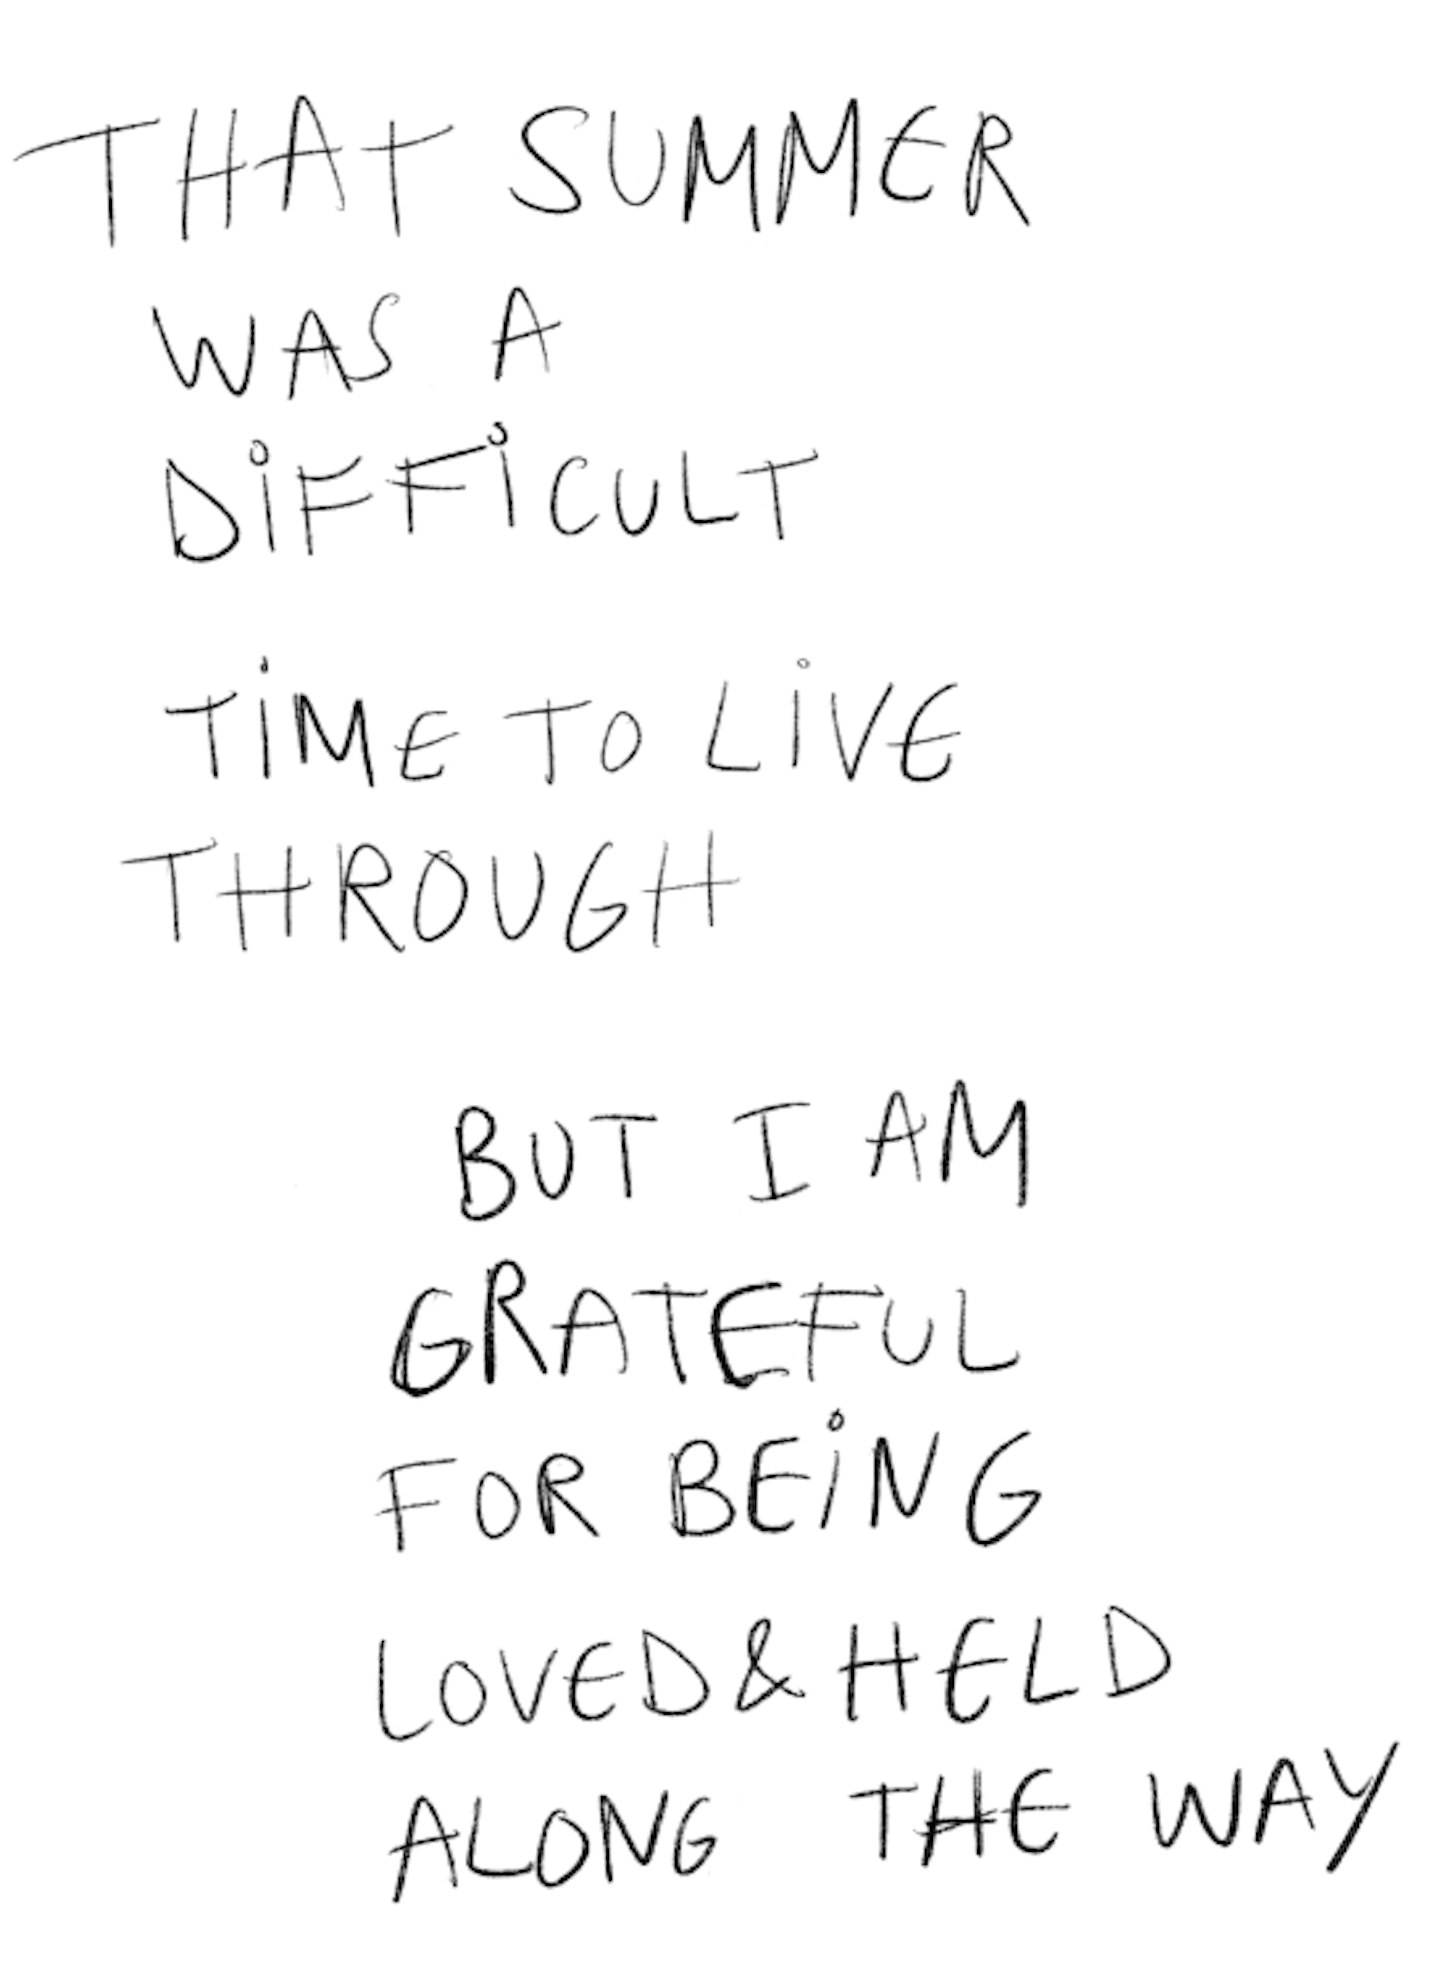 THAT SUMMER
WAS A
DiFFiCULT
TiME TO LiVE
THROUGH
BUT I AM
GRATEFUL
FOR BEiNG
LOVED & HELD
ALONG THE WAY